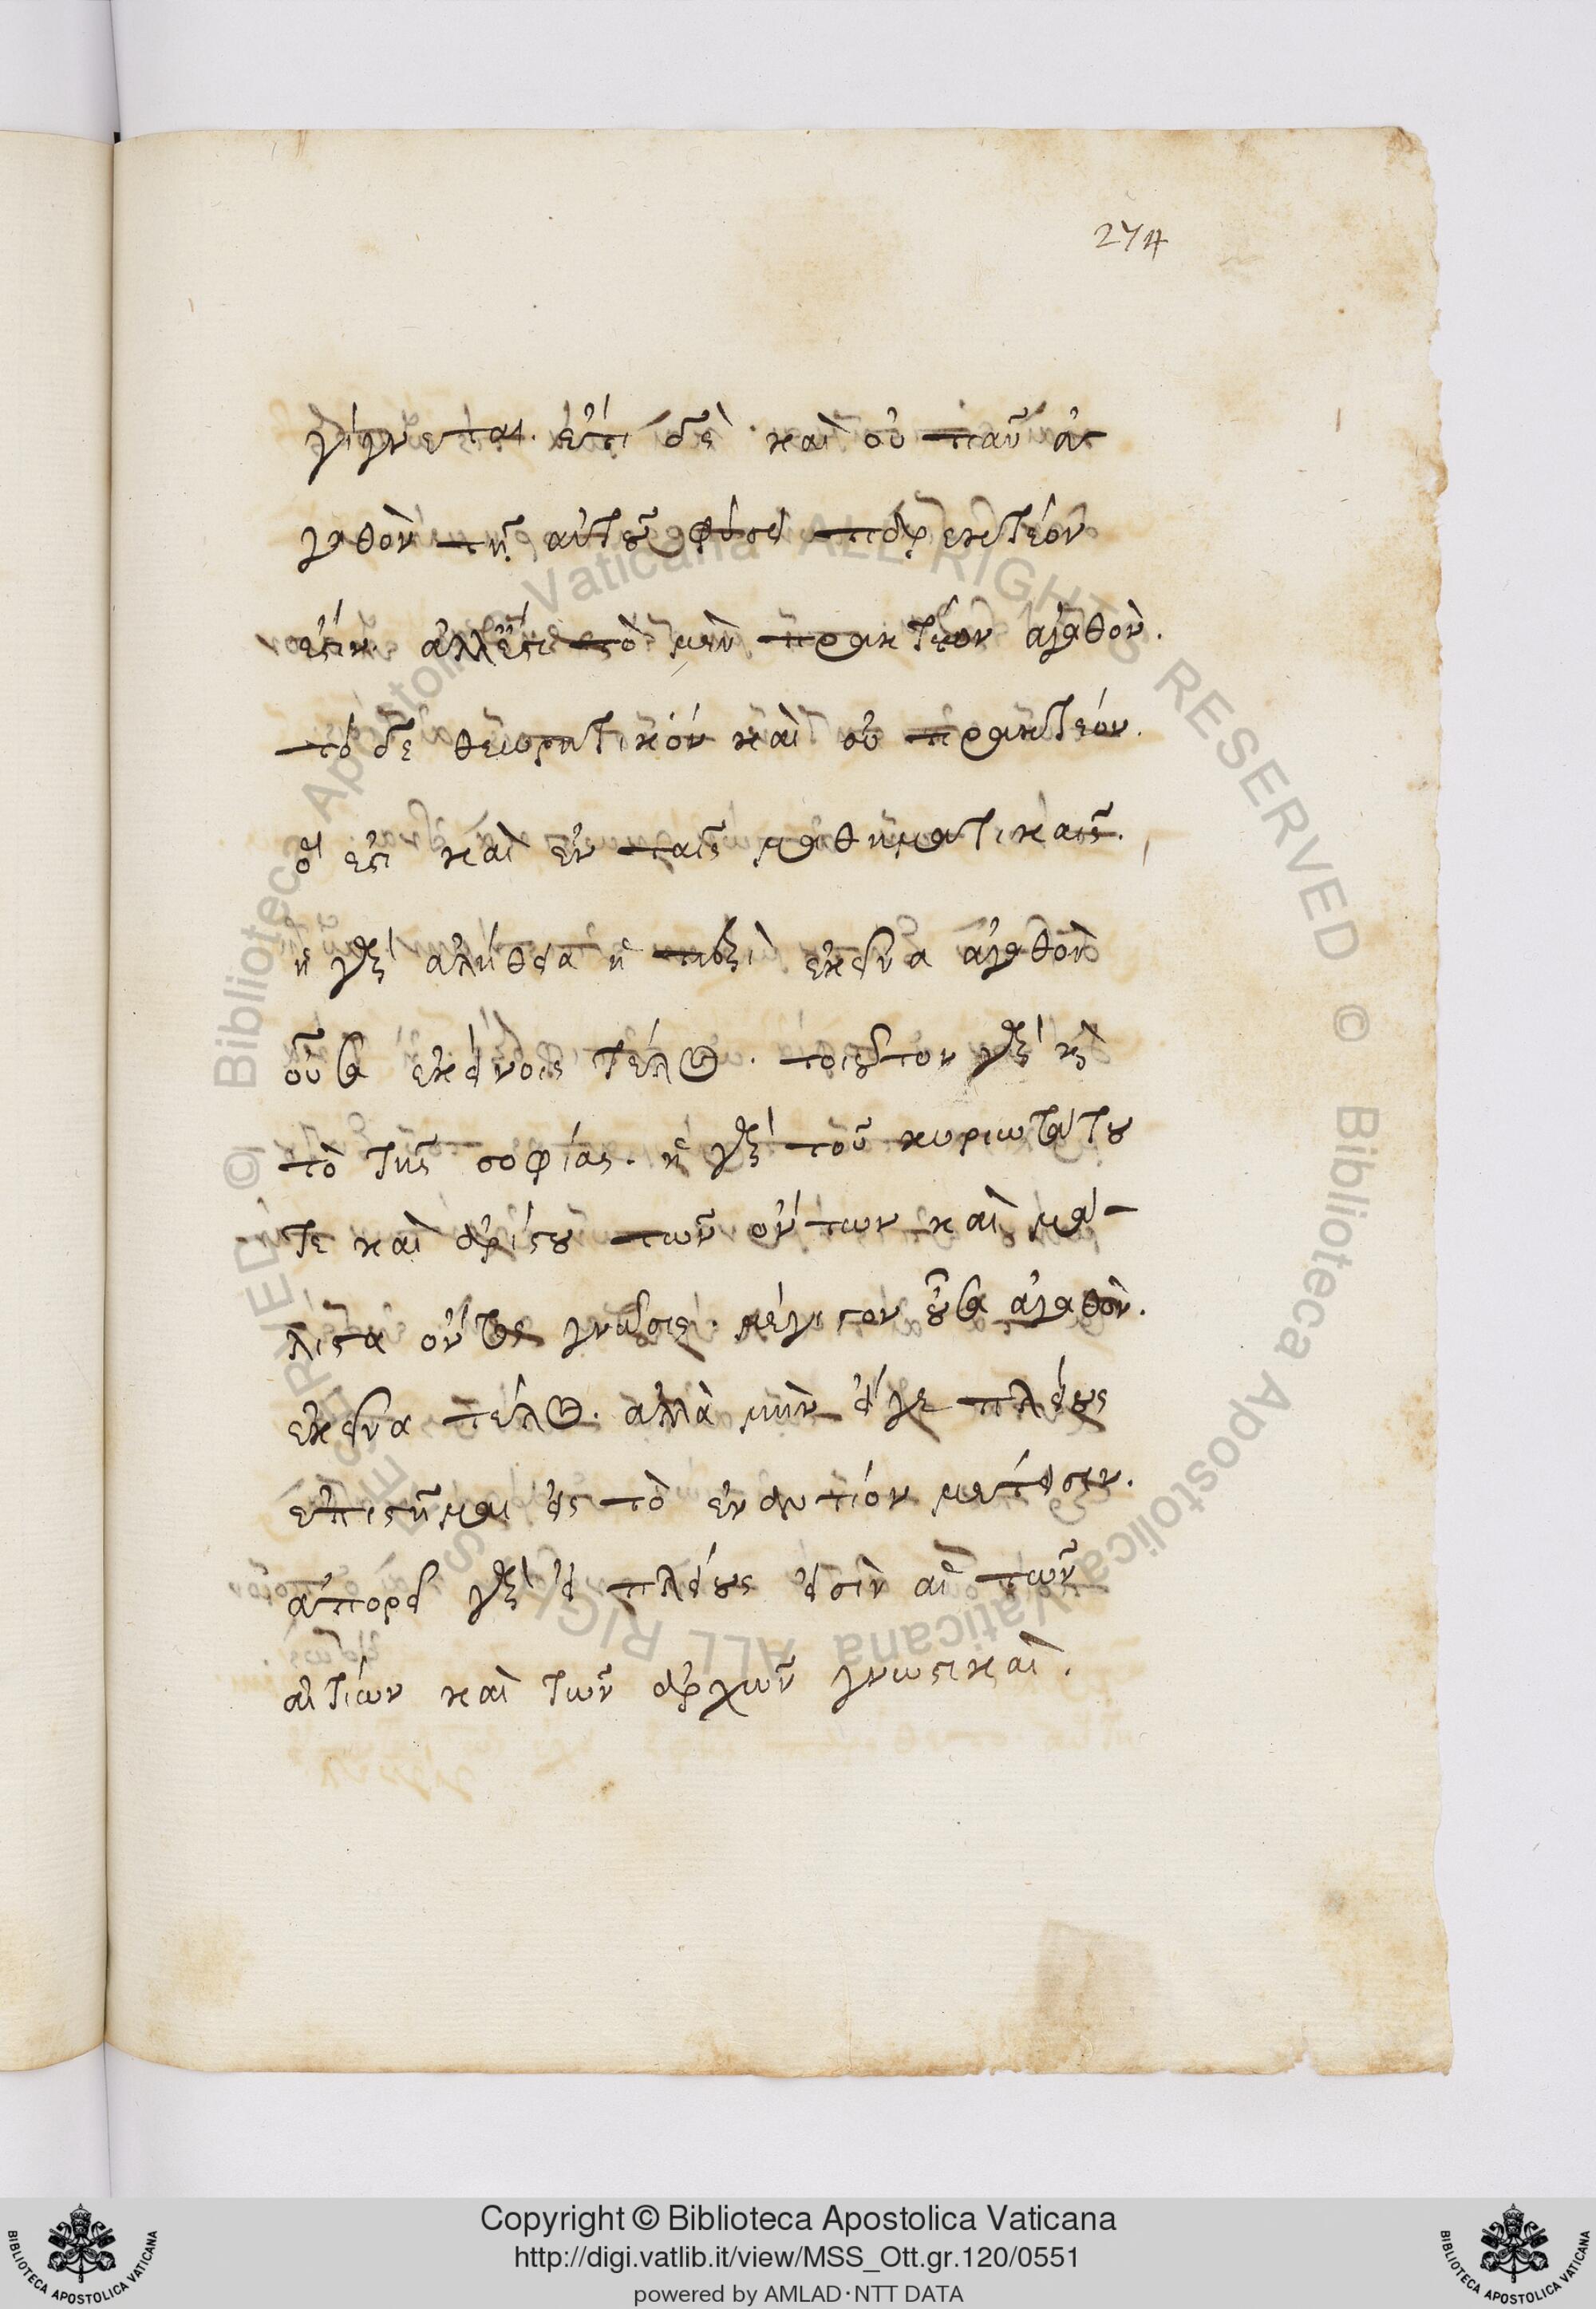 274
γίγνεται. ἔτι δὲ καὶ οὐ πᾶν ἀ-
γαθὸν τῇ αὐτοῦ φύσει πρακτέον
ἐστίν. ἀλλ' ἔστι τὸ μὲν πρακτέον ἀγαθὸν.
τὸ δὲ θεωρητικόν καὶ οὐ πρακτεόν.
ὅ ἐστι καὶ ἐν ταῖς μαθηματικαῖς.
ἡ γὰρ ἀλήθεια ἡ περὶ ἐκεῖνα ἀγαθὸν
οὖσα ἐκείνοις τέλος. τοιοῦτον γὰρ καὶ
τὸ τῆς σοφίας. ἡ γὰρ τοῦ κυριωτάτου
τε καὶ ἀρίστου τῶν ὄντων καὶ μά-
λιστα ὄντος γνῶσις. μέγιστον οὖσα ἀγαθὸν.
ἐκεῖνα τέλος. ἀλλὰ μὴν εἴγε πλείους
ἐπιστῆμαι εἰς τὸ ἐναντίον μέτεισιν.
ἀπορεῖ γὰρ εἰ πλείους εἰσὶν αἱ τῶν
αἰτίων καὶ τῶν ἀρχῶν γνωστικαὶ.
© Biblioteca Apostolica Vaticana ALL RIGHTS RESERVED © Biblioteca Apostolica Vaticana ALL RIGHTS RESERVED
Copyright © Biblioteca Apostolica Vaticana
http://digi.vatlib.it/view/MSS_Ott.gr.120/0551
powered by AMLAD·NTT DATA
BIBLIOTECA APOSTOLICA VATICANA
BIBLIOTECA APOSTOLICA VATICANA